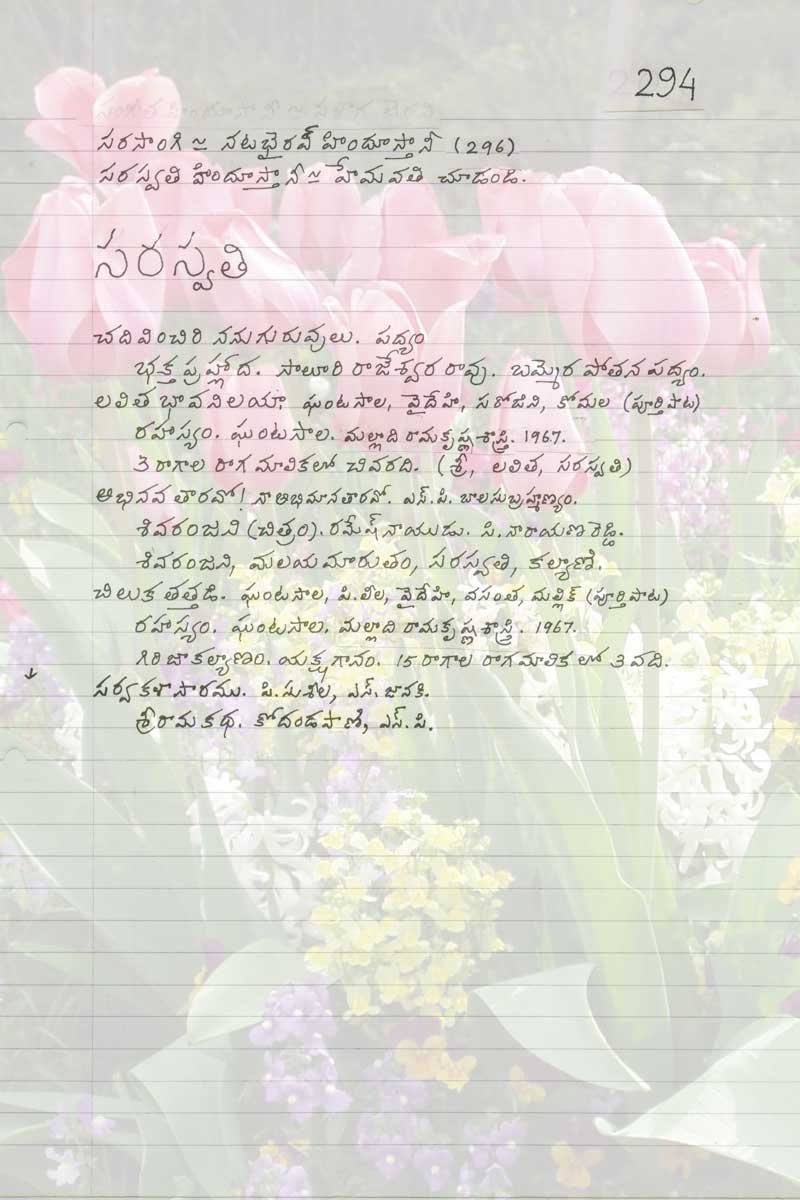 294
సరసాంగి ≃ నటభైరవి హిందూస్తానీ (296)
సరస్వతి హిందూస్తానీ ≃ హేమవతి చూడండి.
సరస్వతి
చదివించిరి నను గురువులు. పద్యం
భక్త ప్రహ్లాద. సాలూరి రాజేశ్వర రావు. బమ్మెర పోతన పద్యం.
లలిత భావ నిలయా. ఘంటసాల, వైదేహి, సరోజిని, కోమల (పూర్తి పాట)
రహస్యం. ఘంటసాల. మల్లాది రామకృష్ణ శాస్త్రి. 1967.
3 రాగాల రాగమాలికలో చివరది. (శ్రీ, లలిత, సరస్వతి)
అభినవ తారవో! నా అభిమాన తారవో. ఎస్.పి. బాలసుబ్రహ్మణ్యం.
శివరంజని (చిత్రం). రమేష్ నాయుడు. సి. నారాయణ రెడ్డి.
శివరంజని, మలయమారుతం, సరస్వతి, కల్యాణి.
చిలుక తత్తడి. ఘంటసాల, పి.లీల, వైదేహి, వసంత, మల్లిక్ (పూర్తి పాట)
రహస్యం. ఘంటసాల. మల్లాది రామకృష్ణ శాస్త్రి. 1967.
గిరిజా కల్యాణం. యక్షగానం. 15 రాగాల రాగమాలిక లో 3 వది.
↓ సర్వకళాసారము. పి.సుశీల, ఎస్. జానకి.
శ్రీరామ కథ. కోదండపాణి, ఎస్. పి.